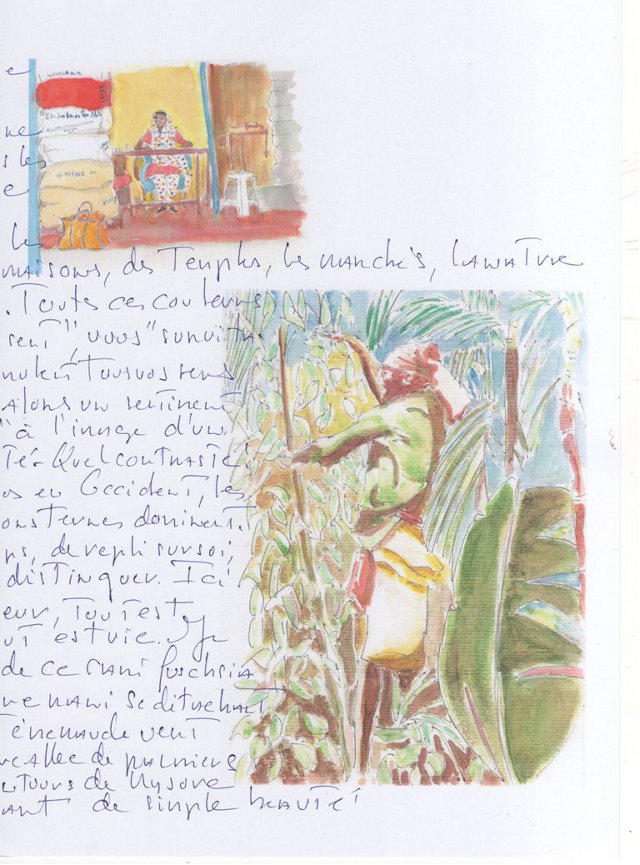 e
ne
s les
e
les
maisons, des Temples, les marchés, la nature
. Toutes ces couleurs
sent "vous"
mulent Tous vos sens
Alors un sentiment
" à l'image d'un
Té. Quel contraste!
os en Occident, les
ons ternes dominent
ns, de repli sur soi,
distinguer. Ici
eur, Tout est
ut est vie. Je
de ce sari fuschsia
ue mari se détachant
T émeraude vert
allée de palmiers
entours de Mysore
ant de simple beauté!